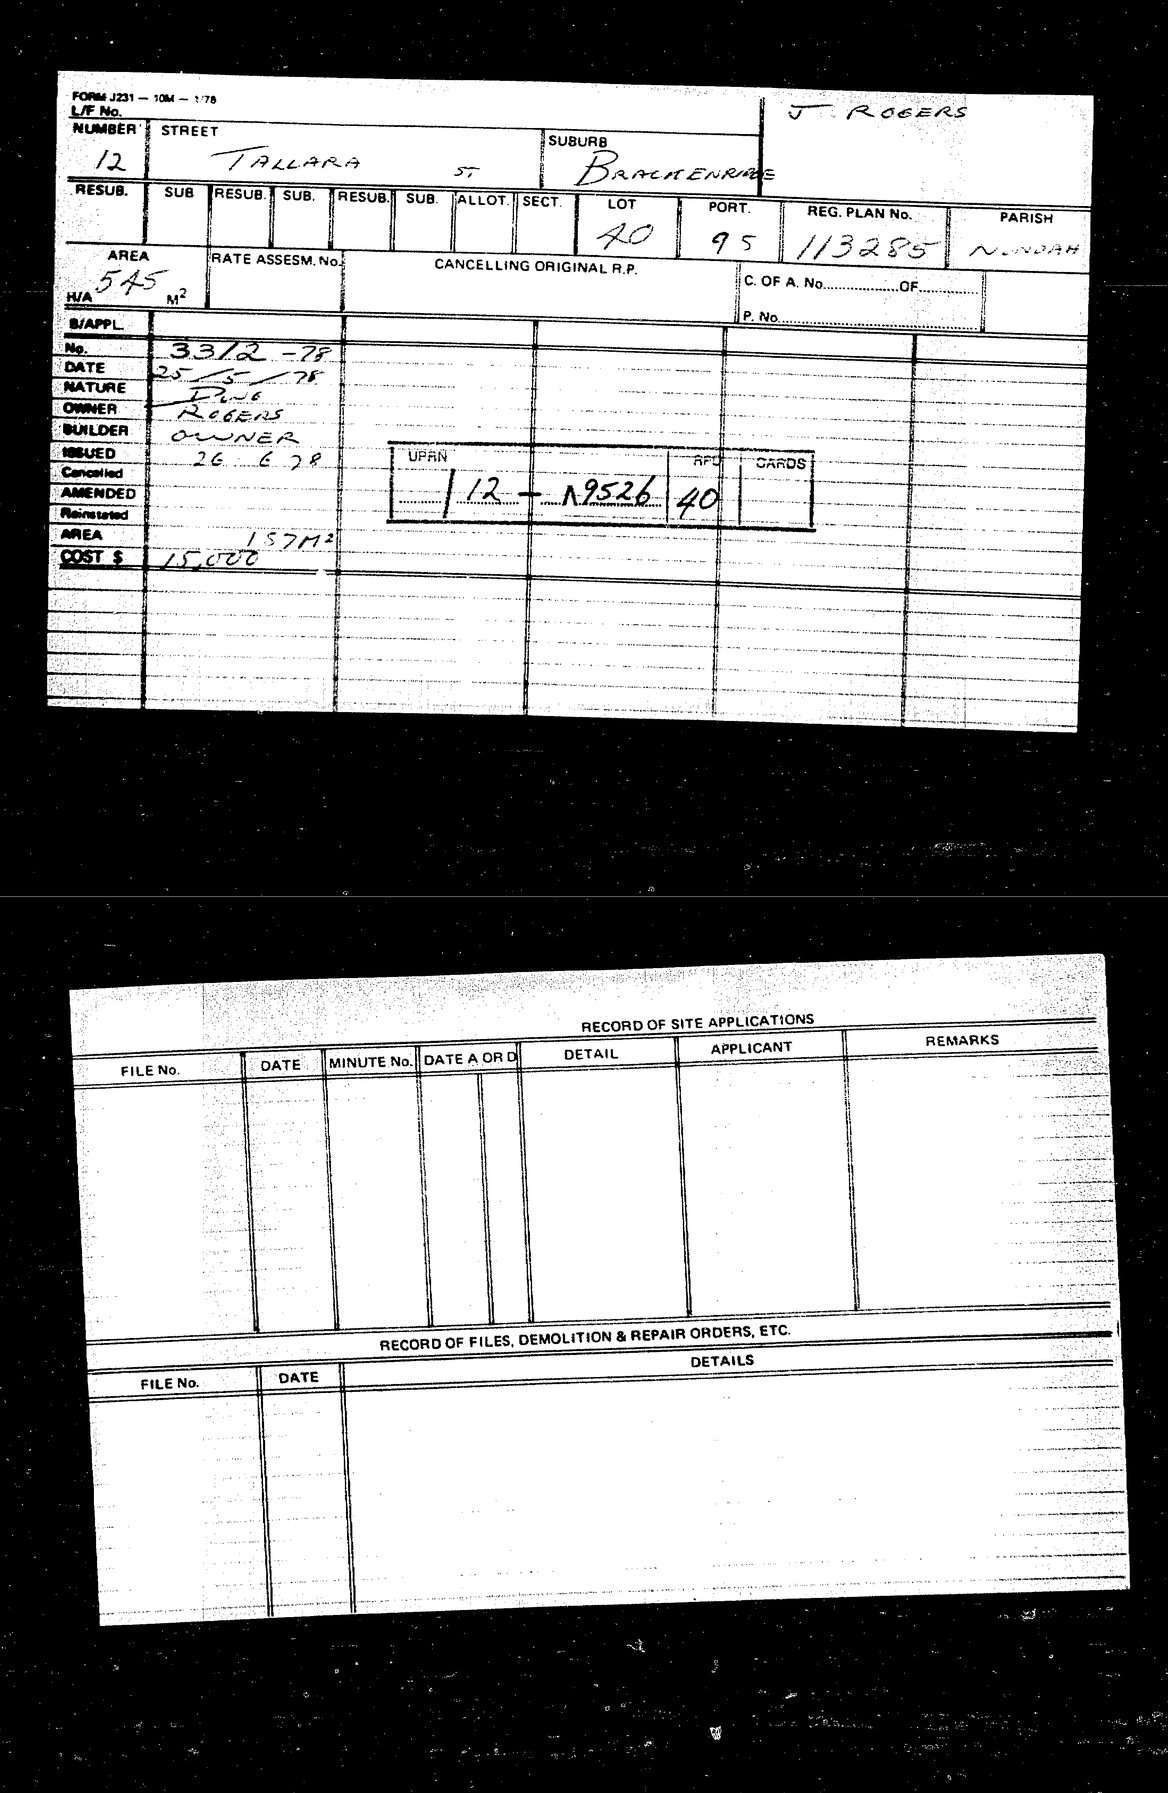 FORM J231 — 10M — 1/78
L/F No.
J. ROGERS
NUMBER STREET SUBURB
12 TALLARA ST BRACKENRIDGE
RESUB. SUB RESUB. SUB. RESUB. SUB. ALLOT. SECT. LOT PORT. REG. PLAN No. PARISH
40 95 113285 NUNDAH
AREA RATE ASSESM. No. CANCELLING ORIGINAL R.P. C. OF A. No. OF
545
H/A M² P. No.
B/APPL.
No. 3312 -78
DATE 25/5/78
NATURE DWG
OWNER ROGERS
BUILDER OWNER
ISSUED 26 6 78
Cancelled
AMENDED
Reinstated
AREA 157M²
COST $ 15,000
UPRN RPD CARDS
12 — 9526 40
RECORD OF SITE APPLICATIONS
FILE No. DATE MINUTE No. DATE A OR D DETAIL APPLICANT REMARKS
RECORD OF FILES, DEMOLITION & REPAIR ORDERS, ETC.
FILE No. DATE DETAILS